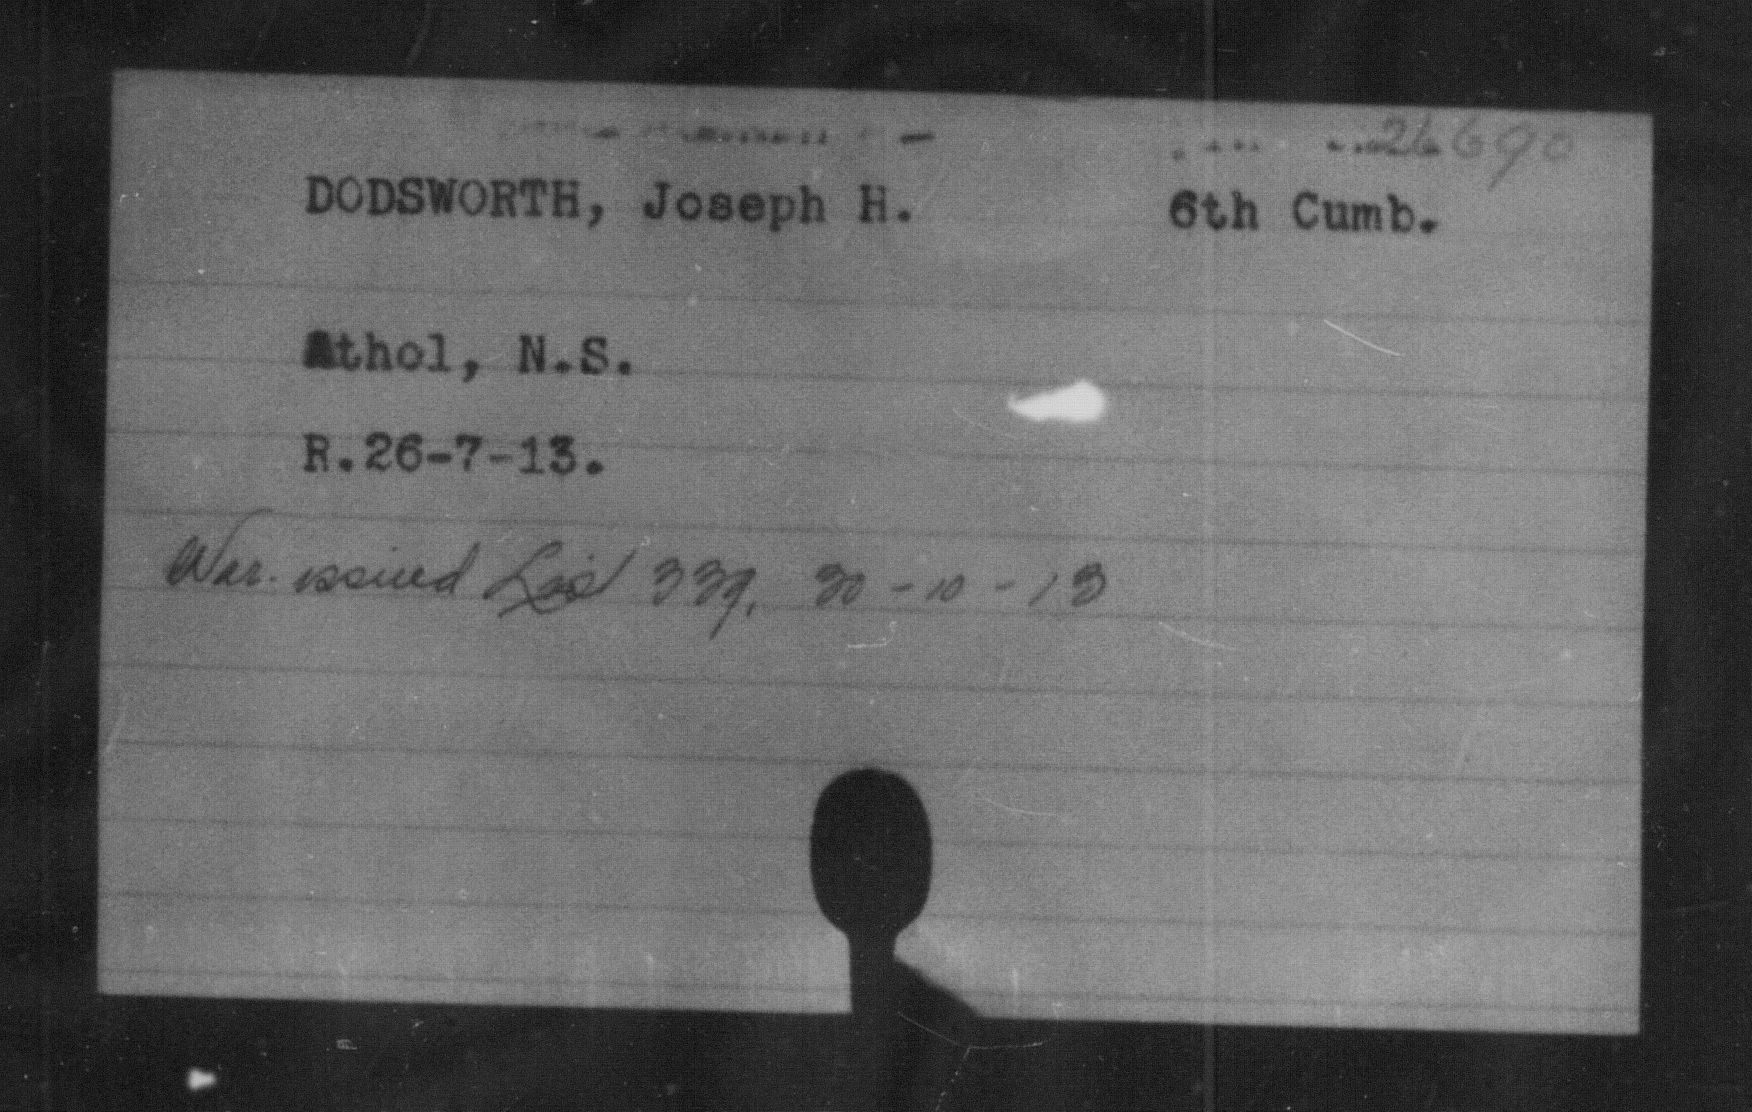 26690
DODSWORTH, Joseph H. 6th Cumb.
Athol, N.S.
R.26-7-13.
War. issued List 339, 30-10-13